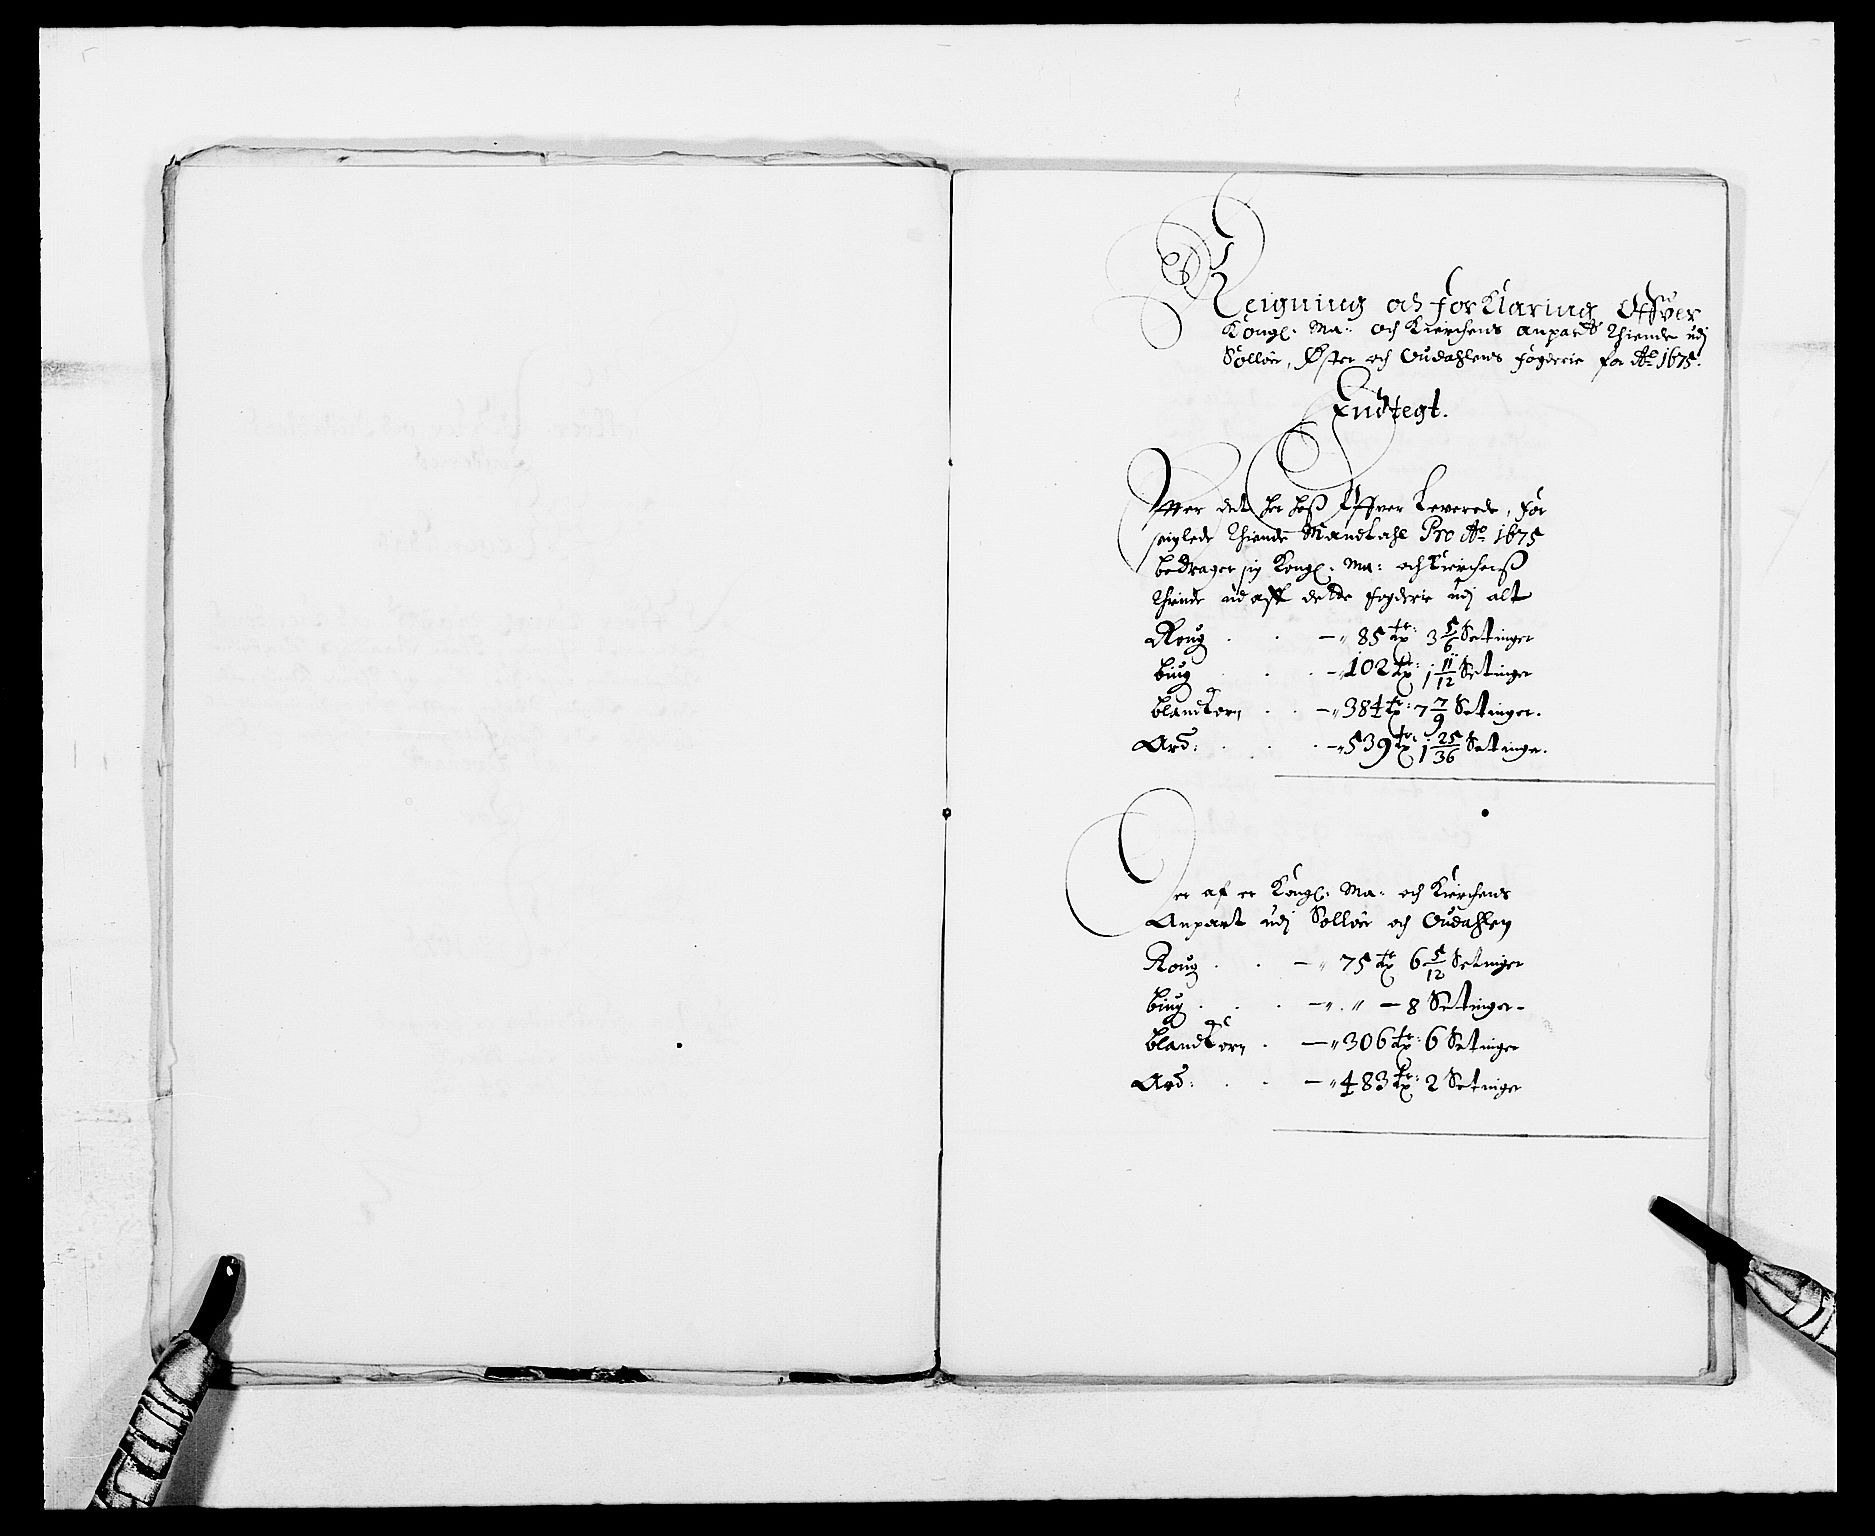 Reigning och forklaring Offver
Kongl: Ma: och Kierchens anpart Thiende udj
Solløer, Øster och Oudahlens fogderie for Ao 1675.
Indtegt.
Efter det her hoß Offver Leverede, for
seiglede Thiende Mandtahl Pro Ao 1675
bedrager sig Kongl: Ma: och Kierchenß
Thiende ud aff dette fogderie udj alt
Roug . . — „ 85 tr: 3 5/6 Setinger
biug . . — „ 102 tr: 1 11/12 Setinger
blandkorn . . — „ 384 tr: 7 7/9 Setinger.
Ard: . . . — „ 539 tr: 1 25/36 Setinge.
Der af er Kongl: Ma: och Kierchens
Anpart udj Solløer och Oudahlen
Roug . . — „ 75 tr 6 5/12 Setinger
biug . . . — „ . „ — 8 Setinger-
blandkorn . — „ 306 tr: 6 Setinger
Ard: . . — „ 483 tr: 2 Setinger